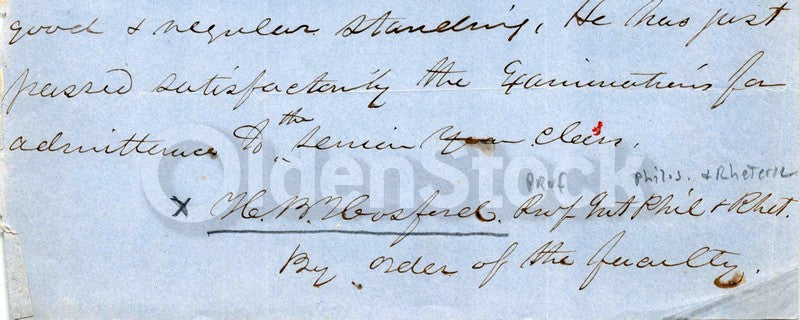 good & regular standing, He has just
passed satisfactorily the Examinations for
admittance to the senior Year class.
OldenStock
Prof Philos. & Rhetoric
X H. B. Hosford. Prof Int Phil & Rhet.
By order of the faculty.